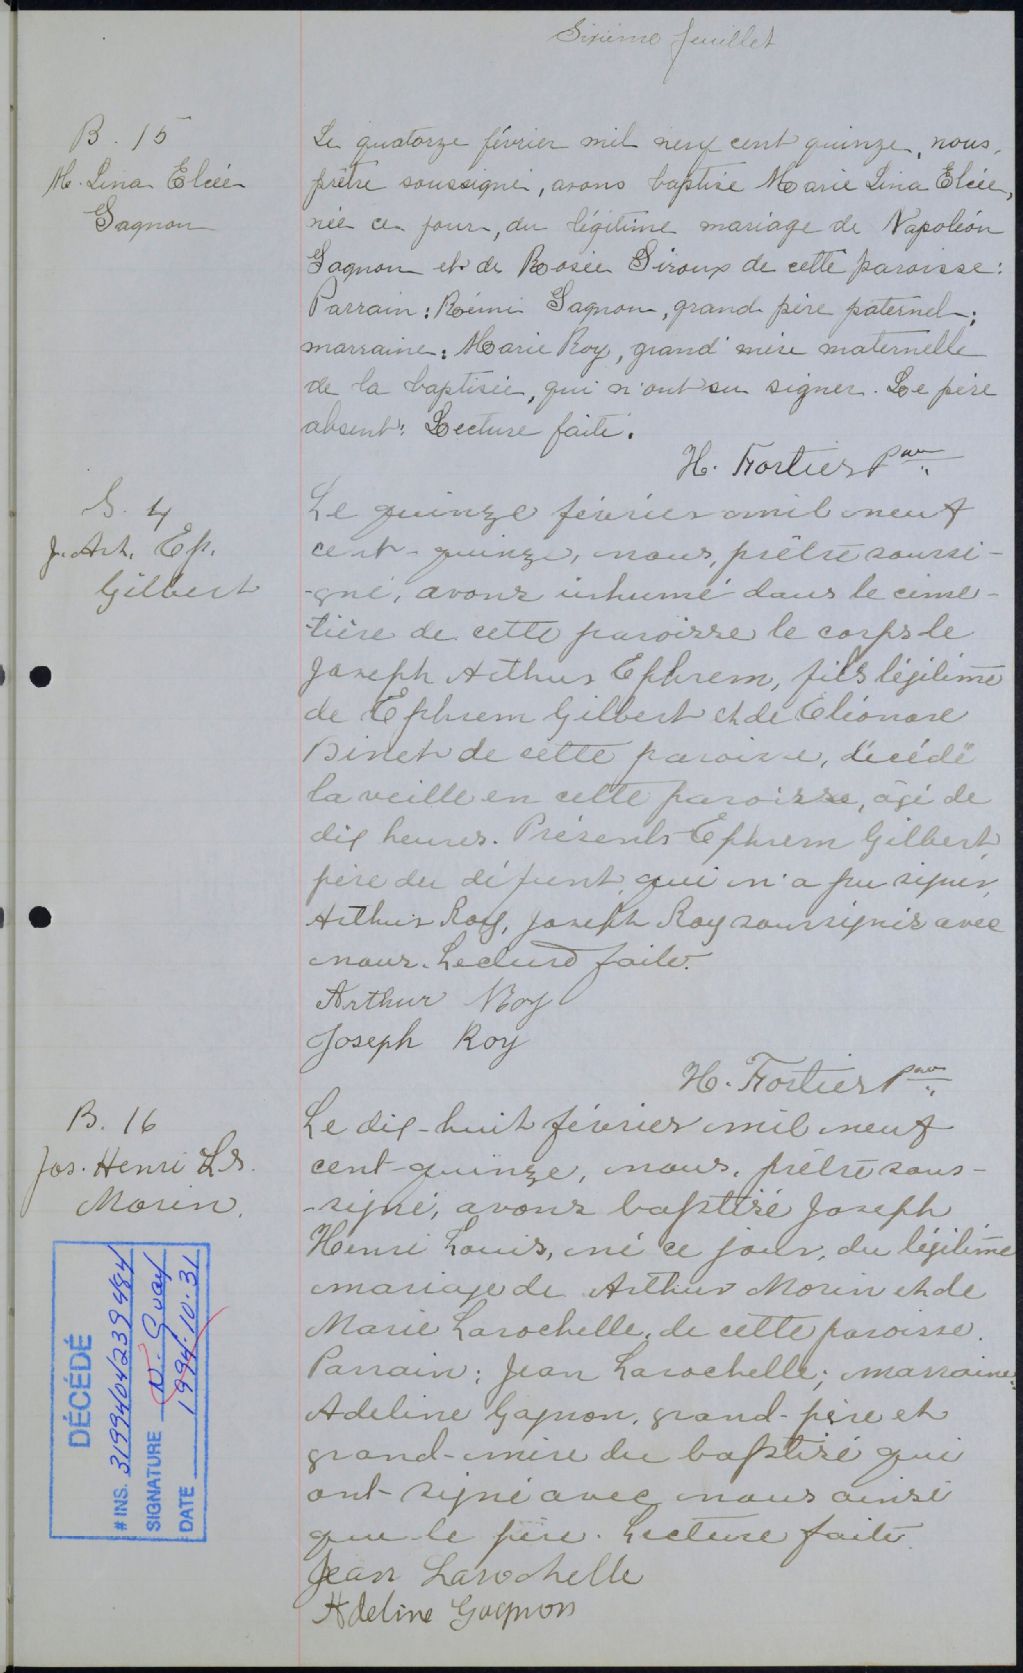 Sixième feuillet
B. 15
M. Lina Elcée
Gagnon
Le quatorze février mil neuf cent quinze, nous,
prêtre soussigné, avons baptisé Marie Lina Elcée,
née ce jour, du légitime mariage de Napoléon
Gagnon et de Rosée Giroux de cette paroisse:
Parrain: Rémi Gagnon, grand père paternel;
marraine: Marie Roy, grand'mère maternelle
de la baptisée, qui n'ont su signer. Le père
absent. Lecture faite.
H. Fortier Ptre
S. 4
J. Art. Ep.
Gilbert
Le quinze février mil neuf
cent-quinze, nous, prêtre soussi-
-gné, avons inhumé dans le cime-
-tière de cette paroisse le corps de
Joseph Arthur Ephrem, fils légitime
de Ephrem Gilbert et de Eléonore
Binet de cette paroisse, décédé
la veille en cette paroisse, âgé de
dix heures. Présents Ephrem Gilbert,
père du défunt, qui n'a pu signer,
Arthur Roy, Joseph Roy soussignés avec
nous. Lecture faite.
Arthur Roy
Joseph Roy
H. Fortier Ptre
B. 16
Jos. Henri Ls.
Morin.
Le dix-huit février mil neuf
cent-quinze, nous, prêtre sous-
-signé, avons baptisé Joseph
Henri Louis, né ce jour, du légitime
mariage de Arthur Morin et de
Marie Larochelle, de cette paroisse.
Parrain: Jean Larochelle; marraine:
Adeline Gagnon, grand-père et
grand-mère du baptisé qui
ont signé avec nous ainsi
que le père. Lecture faite.
Jean Larochelle
Adeline Gagnon
DÉCÉDÉ
# INS. 3199404239484
SIGNATURE N. Guay
DATE 1994-10-31